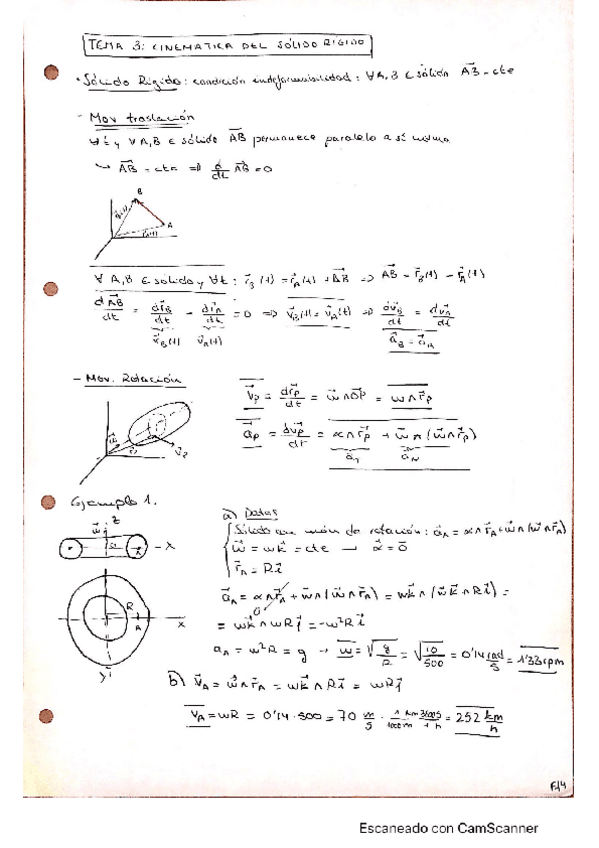 TEMA 3: CINEMATICA DEL SÓLIDO RÍGIDO
· Sólido Rígido: condición indeformabilidad: ∀A,B ∈ sólido AB⃗ = cte
- Mov traslación
∀t y ∀A,B ∈ sólido AB⃗ permanece paralelo a sí mismo.
↳ AB⃗ = cte ⇒ d/dt AB⃗ = 0
B
r⃗B(t)
A
r⃗A(t)
∀ A,B ∈ sólido y ∀t: r⃗B(t) = r⃗A(t) + AB⃗ ⇒ AB⃗ = r⃗B(t) - r⃗A(t)
dAB⃗/dt = dr⃗B/dt - dr⃗A/dt = 0 ⇒ v⃗B(t) = v⃗A(t) ⇒ dv⃗B/dt = dv⃗A/dt
v⃗B(t) v⃗A(t) a⃗B = a⃗A
- Mov. Rotación
v⃗P = dr⃗P/dt = w⃗∧OP⃗ = w∧r⃗P
a⃗P = dv⃗P/dt = α∧r⃗P + w⃗∧(w⃗∧r⃗P)
a⃗T a⃗N
w⃗
v⃗P
Ejemplo 1.
a) Datos
Sólido con mov de rotación: a⃗A = α∧r⃗A + w⃗∧(w⃗∧r⃗A)
w⃗ = wk⃗ = cte → α⃗ = 0
r⃗A = Ri⃗
w⃗ z
A
- X
a⃗A = α∧r⃗A + w∧(w⃗∧r⃗A) = wk⃗∧(wk⃗∧Ri⃗) =
0
= wk⃗∧wRj⃗ = -w²Ri⃗
R
A
X
y
aA = w²R = g → w = √(g/R) = √(10/500) = 0'14 rad/s = 1'33 rpm
b) v⃗A = w⃗∧r⃗A = wk⃗∧Ri⃗ = wRj⃗
vA = wR = 0'14·500 = 70 m/s · 1 km/1000m · 3600s/1 h = 252 km/h
F/4
Escaneado con CamScanner